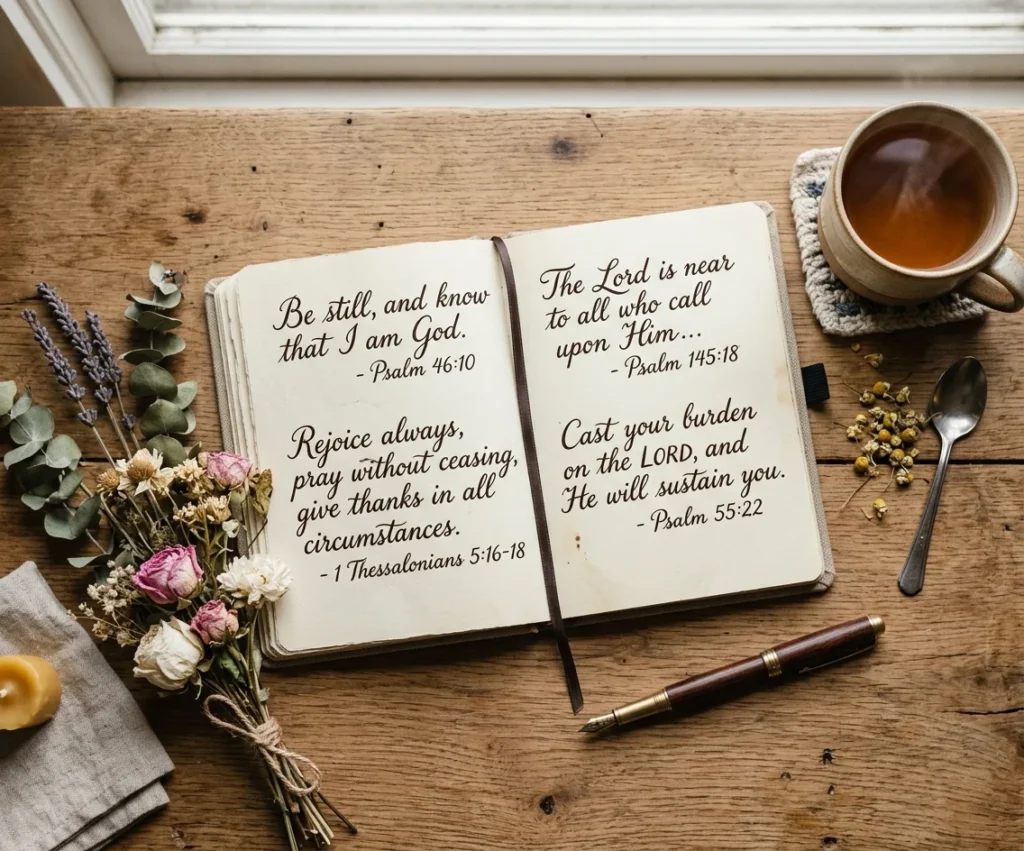 Be still, and know
that I am God.
- Psalm 46:10
Rejoice always,
pray without ceasing,
give thanks in all
circumstances.
- 1 Thessalonians 5:16-18
The Lord is near
to all who call
upon Him...
- Psalm 145:18
Cast your burden
on the LORD, and
He will sustain you.
- Psalm 55:22